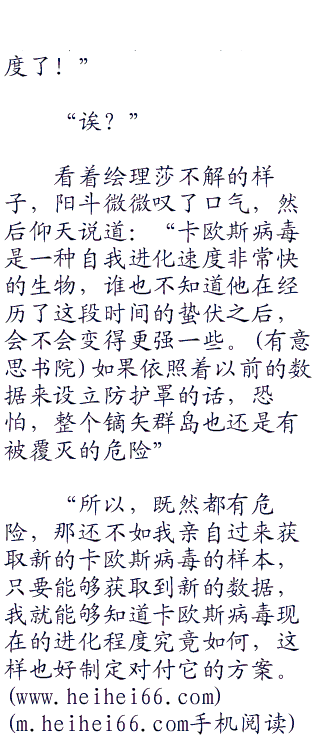 度了！”
“诶？”
看着绘理莎不解的样
子，阳斗微微叹了口气，然
后仰天说道：“卡欧斯病毒
是一种自我进化速度非常快
的生物，谁也不知道他在经
历了这段时间的蛰伏之后，
会不会变得更强一些。(有意
思书院)如果依照着以前的数
据来设立防护罩的话，恐
怕，整个镝矢群岛也还是有
被覆灭的危险”
“所以，既然都有危
险，那还不如我亲自过来获
取新的卡欧斯病毒的样本，
只要能够获取到新的数据，
我就能够知道卡欧斯病毒现
在的进化程度究竟如何，这
样也好制定对付它的方案。
(www.heihei66.com)
(m.heihei66.com手机阅读)